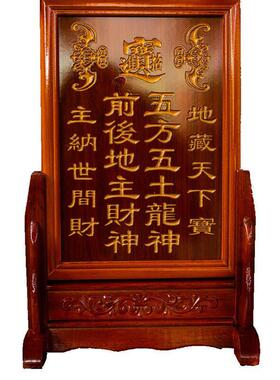 招財進寶
地藏天下寶
五方五土龍神
前後地主財神
主納世間財